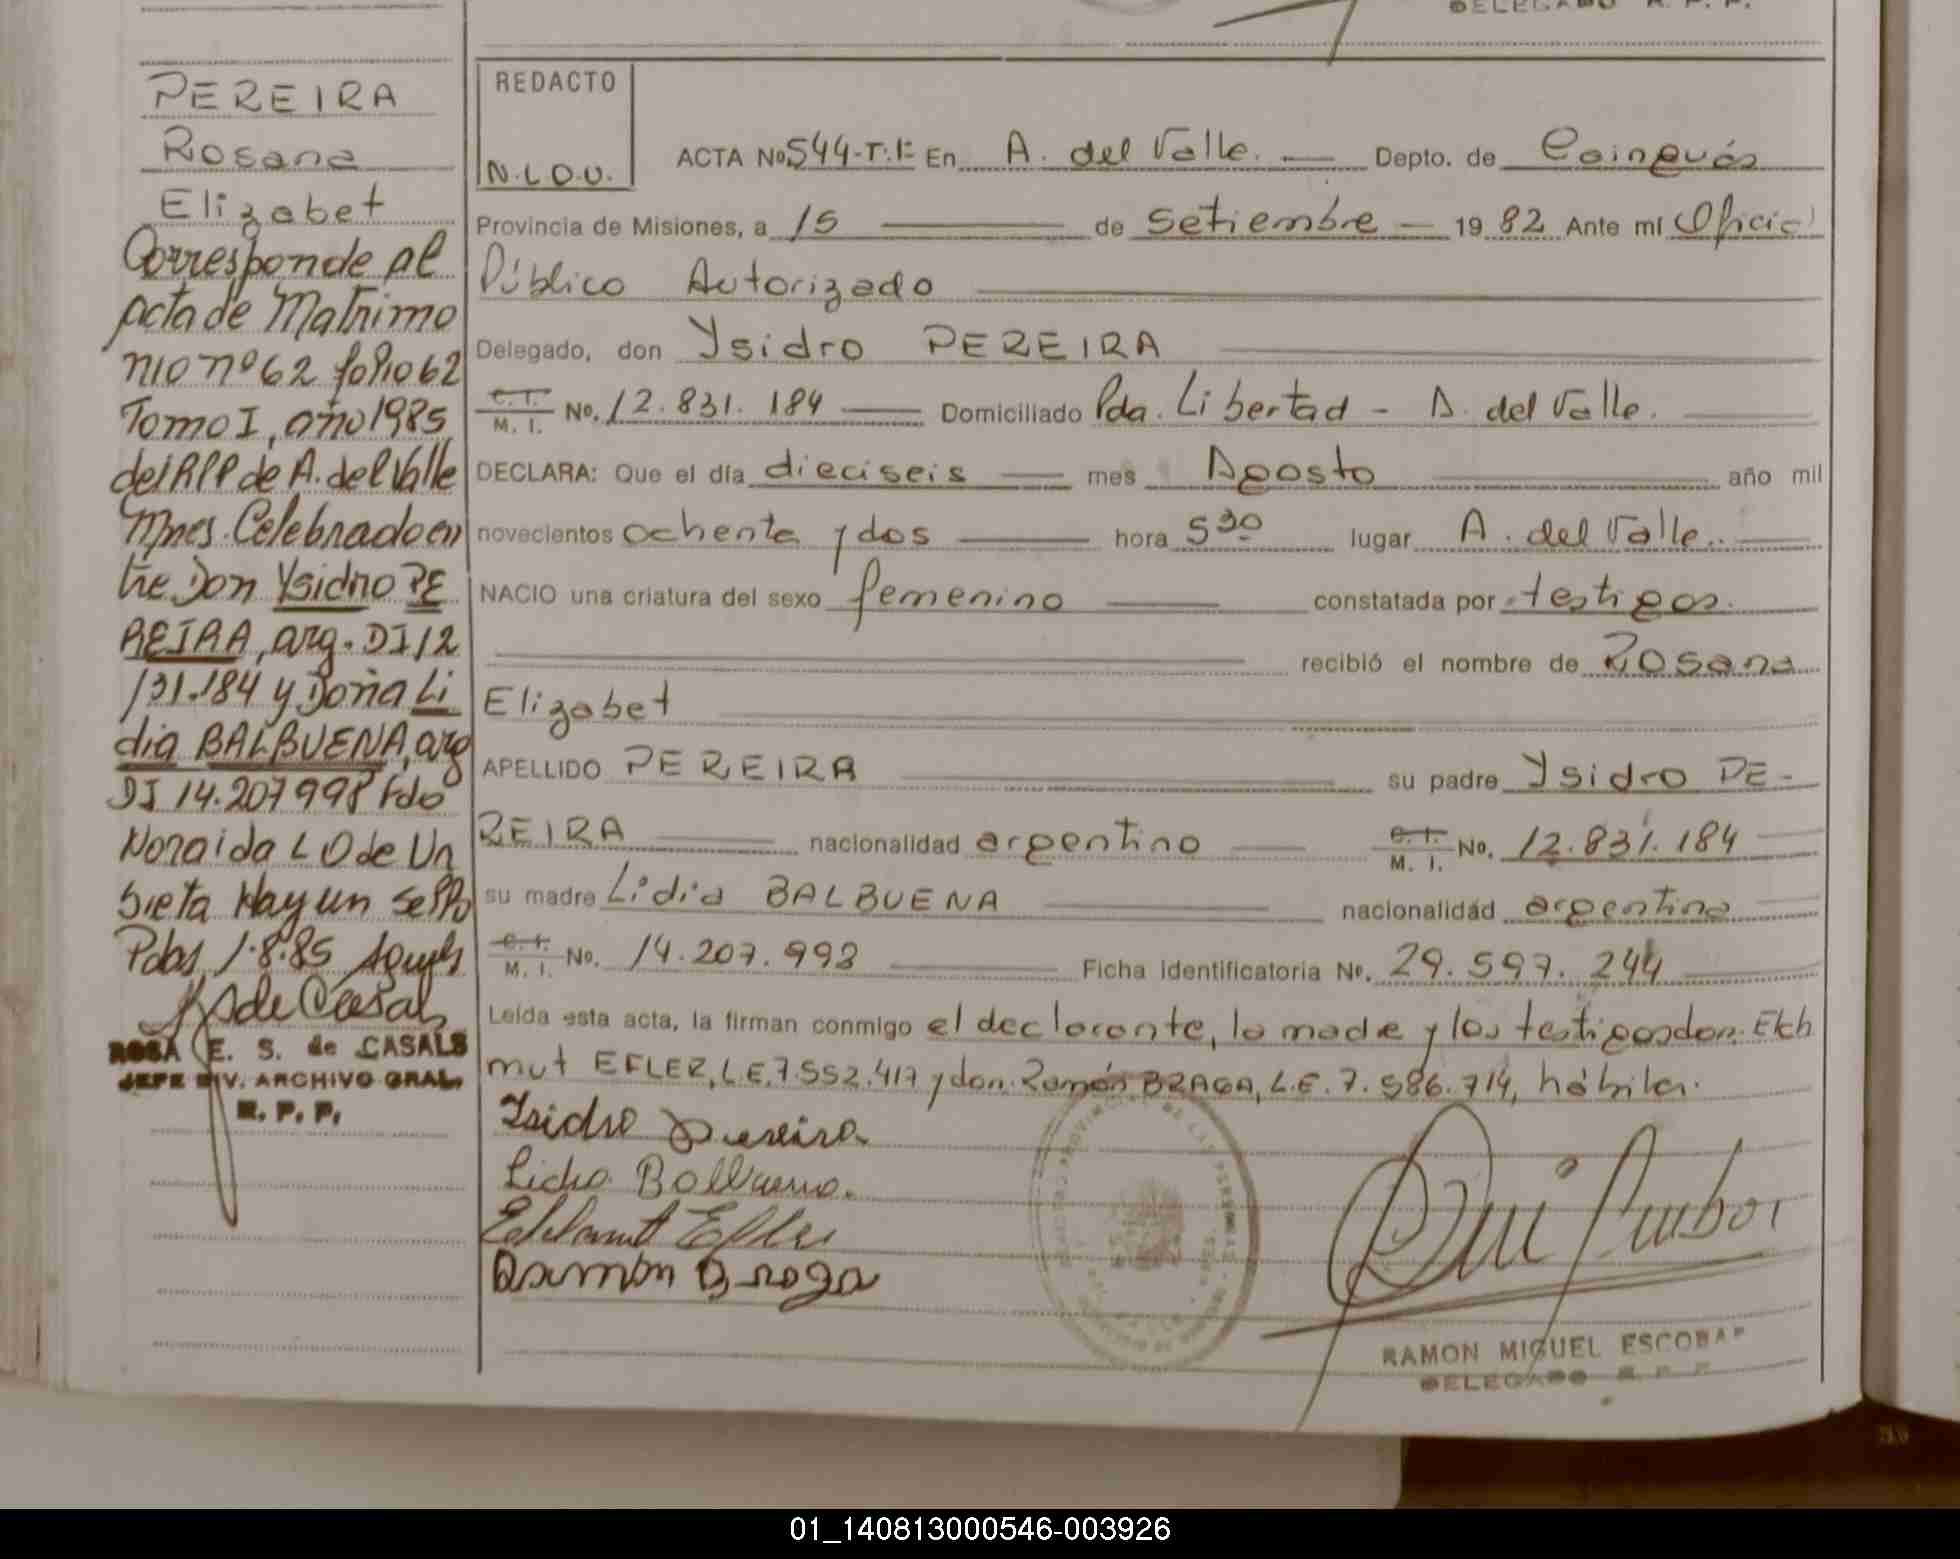 DELEGADO R. P. P.
PEREIRA
Rosana
Elizabet
Corresponde al
acta de Matrimo
nio nº 62 folio 62
Tomo I, año 1985
del RPP de A. del Valle
Mnes. Celebrado en
tre Don Ysidro PE
REIRA, arg. DI 12
131.184 y Doña Li
dia BALBUENA, arg
DI 14.207998 Fdo
Noraida L O de Un
sieta Hay un sello
Pdas, 1.8.85
de Casals
ROSA E. S. de CASALS
JEFE DIV. ARCHIVO GRAL.
R. P. P.
REDACTO
N.L.O.U.
ACTA No. 544-T.1º En A. del Valle. — Depto. de Cainguás
Provincia de Misiones, a 15 — de Setiembre — 19 82 Ante mí Oficial
Público Autorizado
Delegado, don Ysidro PEREIRA
C. I. M. I. No. 12.831.184 — Domiciliado Pda. Libertad - A. del Valle.
DECLARA: Que el día dieciseis — mes Agosto — año mil
novecientos ochenta y dos — hora 5 30 lugar A. del Valle. —
NACIO una criatura del sexo femenino — constatada por testigos.
recibió el nombre de Rosana
Elizabet
APELLIDO PEREIRA — su padre Ysidro PE-
REIRA — nacionalidad argentino — C. I. M. I. No. 12.831.184
su madre Lidia BALBUENA — nacionalidad argentina
C. I. M. I. No. 14.207.998 — Ficha identificatoria No. 29.597.244
Leída esta acta, la firman conmigo el declarante, la madre y los testigos don. Etch
mut EFLER, L.E. 7.552.417 y don. Ramón BRAGA, L.E. 7.586.714, hábiles.
Isidro Pereira
Lidia Balbuena.
Edelmut Efler
Ramón Braga
RAMON MIGUEL ESCOBAR
DELEGADO R. P. P.
01_140813000546-003926